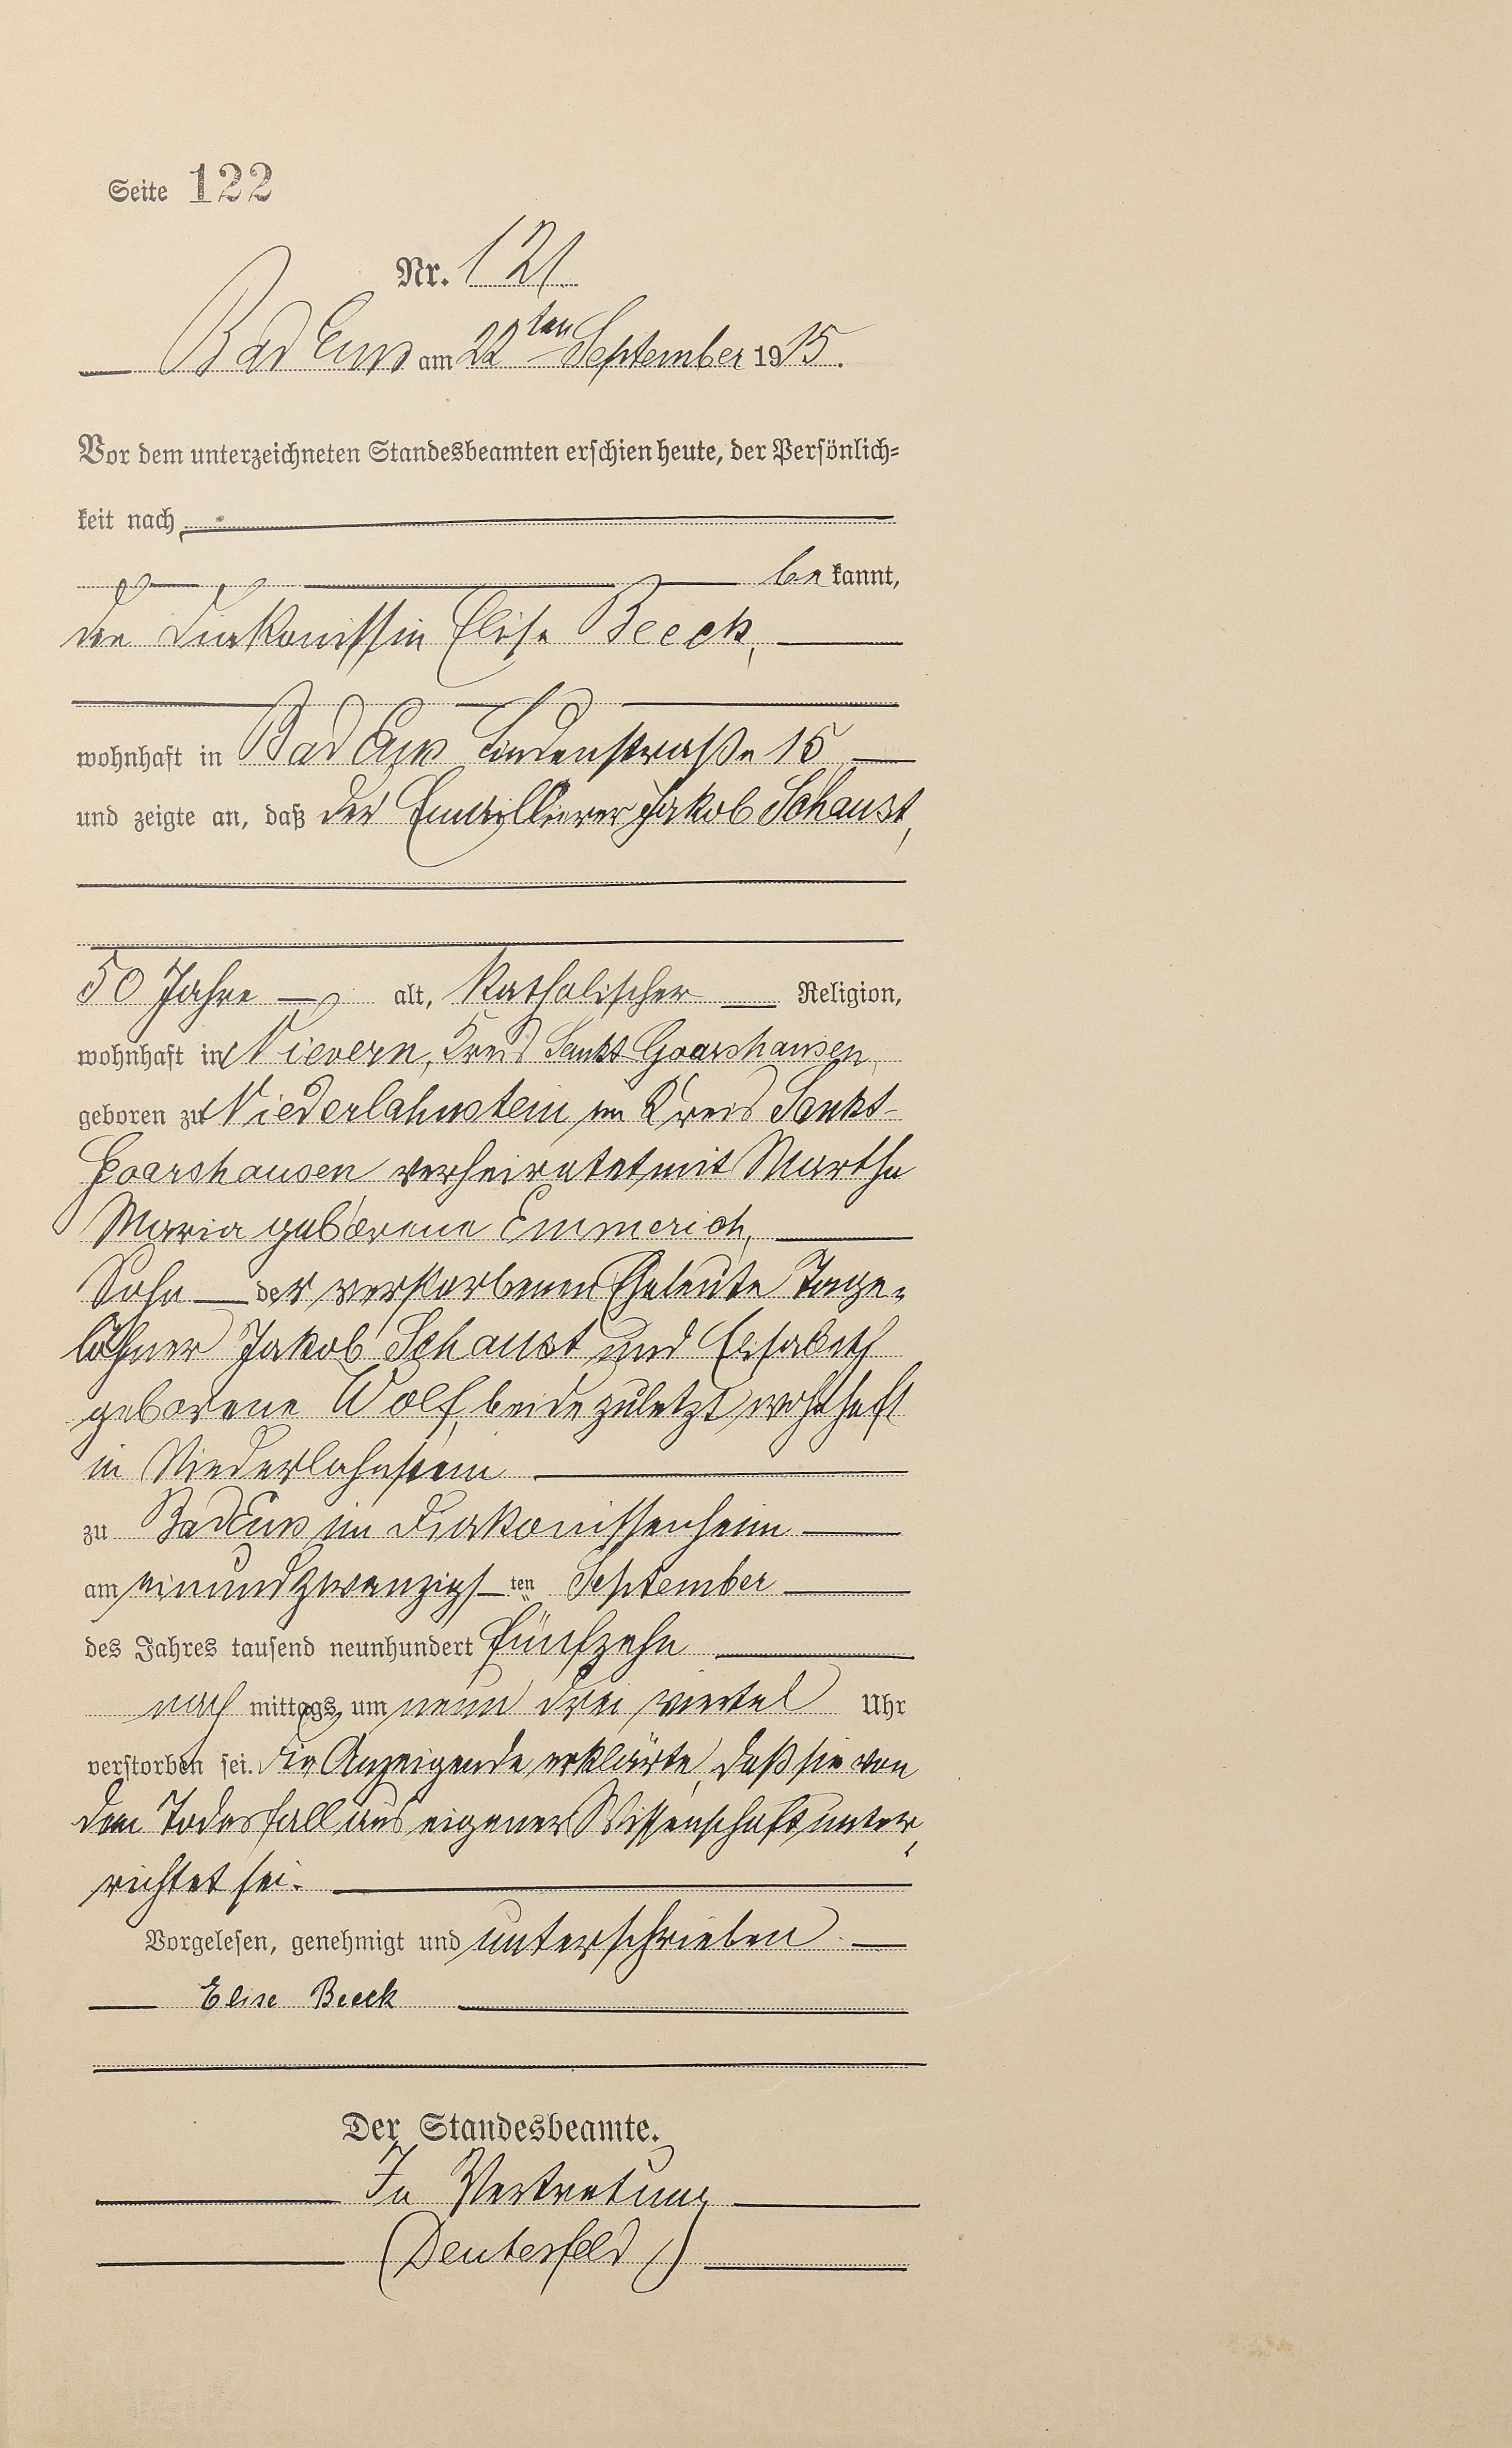 Seite 122
Nr. 121
Bad Ems am 22ten September 1915.
Vor dem unterzeichneten Standesbeamten erschien heute, der Persönlich=
keit nach
bekannt,
die Diakonissin Elise Beeck,
wohnhaft in Bad Ems Lindenstraße 15
und zeigte an, daß der Emaillierer Jakob Schaust,
50 Jahre alt, katholischer Religion,
wohnhaft in Nievern, Kreis Sankt Goarshausen,
geboren zu Niederlahnstein im Kreis Sankt-
Goarshausen verheiratet mit Martha
Maria geborene Emmerich,
Sohn der verstorbenen Eheleute Tage„
löhner Jakob Schaust und Elisabeth
geborene Wolf, beide zuletzt wohnhaft
in Niederlahnstein
zu Bad Ems im Diakonissenheim
am einundzwanzigsten September
des Jahres tausend neunhundert fünfzehn
nachmittags um neun drei viertel Uhr
verstorben sei. Die Anzeigende erklärte, daß sie von
dem Todesfall aus eigener Wissenschaft unter„
richtet sei.
Vorgelesen, genehmigt und unterschrieben
Elise Beeck
Der Standesbeamte.
In Vertretung
(Deutesfeld)